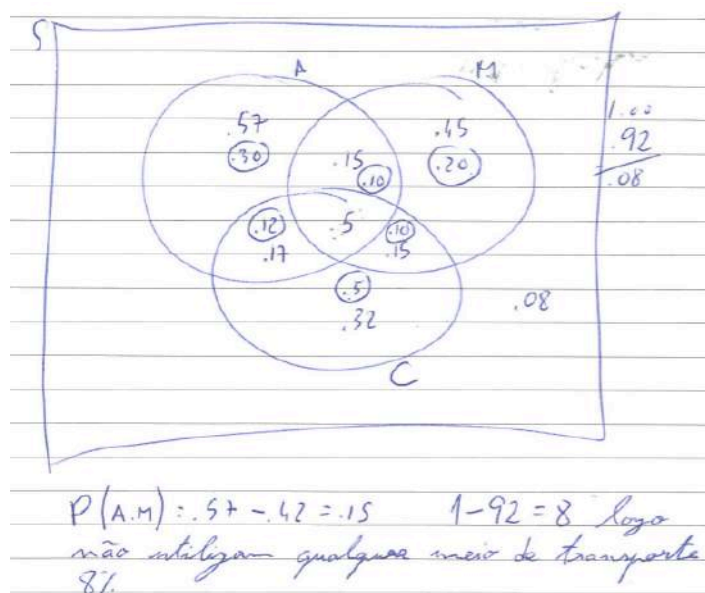 S
A M
.57 .45
.30 .15 .20
.10
.12 .5 .10
.17 .15
.5
.32 .08
C
1.00
.92
.08
P(A.M) = .57 - .42 = .15 1-92=8 logo
não utilizam qualquer meio de transporte
8%